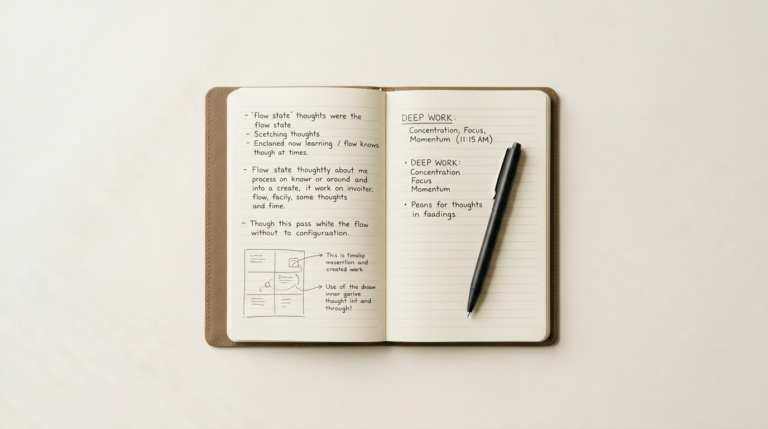 - "flow state" thoughts were the
flow state
- Scetching thoughts
- Enclaned now learning / flow knows
though at times.
- Flow state thoughtty about me
process on knowr or around and
into a create, it work on invoiter.
flow, facily, some thoughts
and fime.
- Though this pass while the flow
without to configuraation.
This is timolsp
mesernlion and
created work
Use of the draow
inner garive
thought int and
through!
DEEP WORK:
Concentration, Focus,
Momentum (11:15 AM)
• DEEP WORK:
Concentration
Focus
Momentum
• Peans for thoughts
in faadings